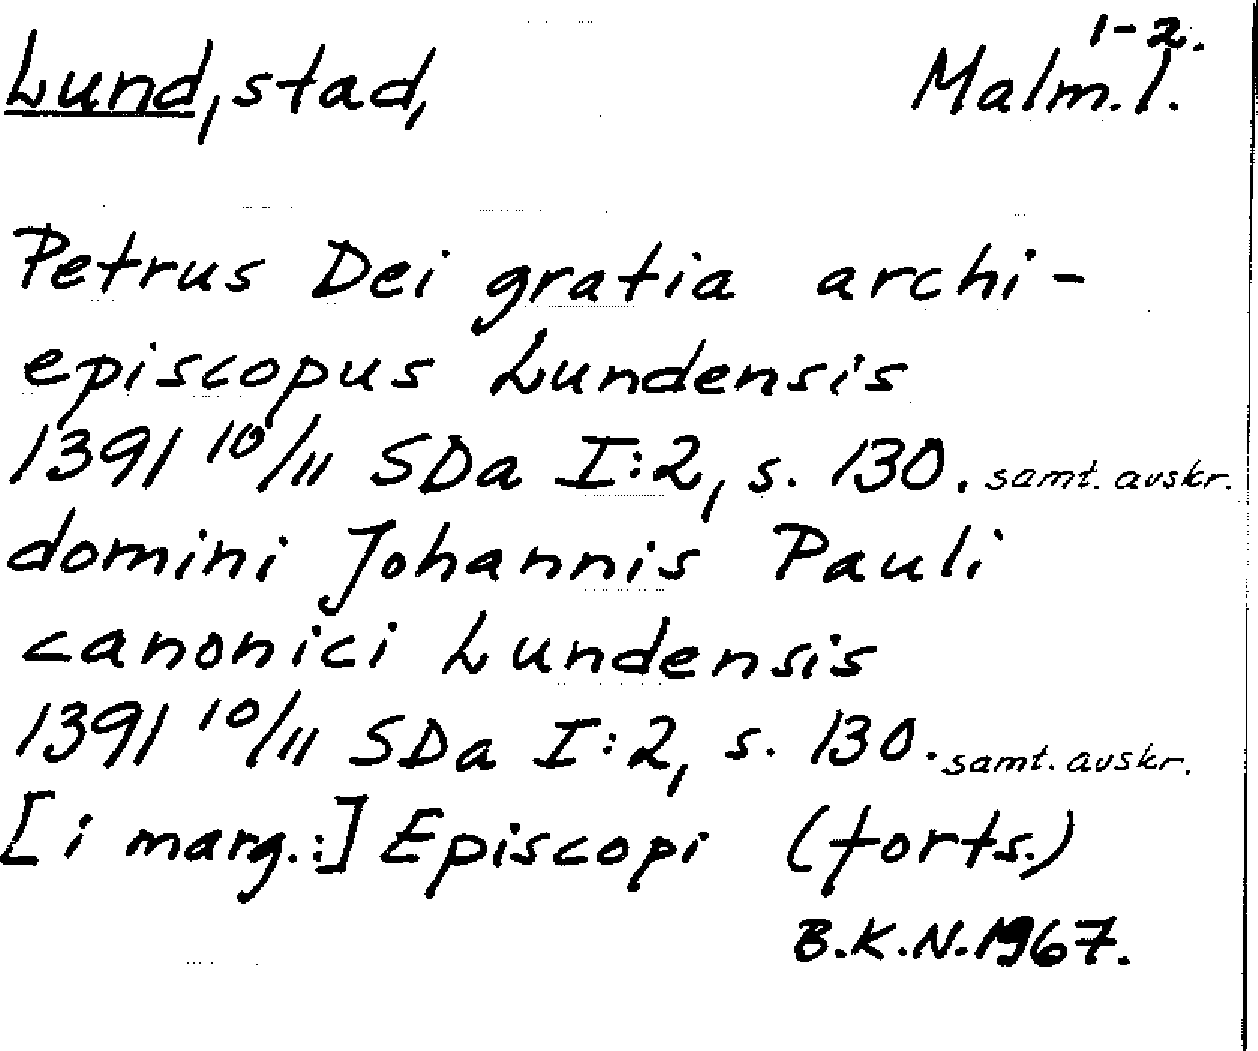 1-2.
Lund, stad, Malm. l.
Petrus Dei gratia archi-
episcopus Lundensis
1391 10/11 SDa I:2, s. 130. samt. avskr.
domini Johannis Pauli
canonici Lundensis
1391 10/11 SDa I:2, s. 130. samt. avskr.
[i marg.:] Episcopi (forts.)
B.K.N. 1967.